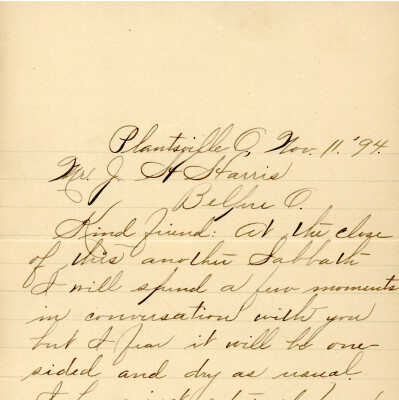 Plantsville O, Nov. 11. '94.
Mr. J. H Harris
Belpre O.
Kind friend: At the close
of this another Sabbath
I will spend a few moments
in conversation with you
but I fear it will be one
sided and dry as usual.